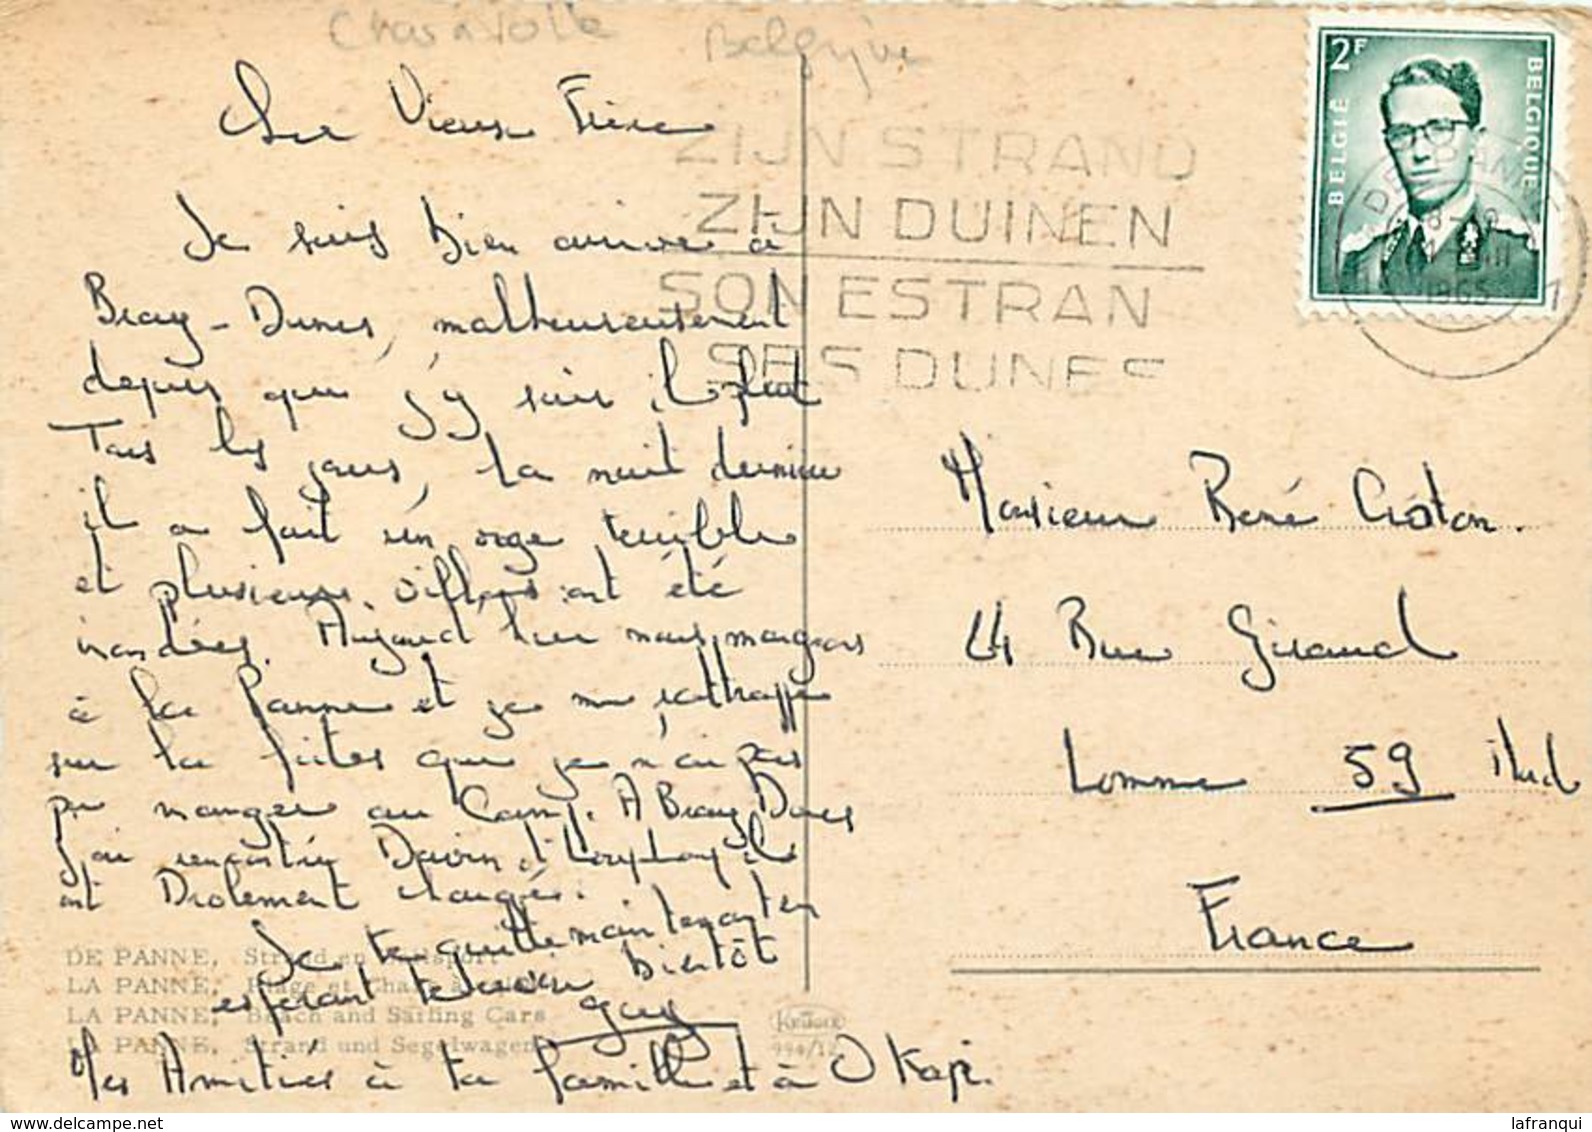 Char à Voile
Belgique
2F
BELGIË
BELGIQUE
DE PANNE
1965
1
ZIJN STRAND
ZIJN DUINEN
SON ESTRAN
SES DUNES
Vieux Frère
Je suis bien arrivé à
Bray-Dunes, malheureusement
depuis que j'y suis il pleut
Tous les jours, la nuit dernière
il a fait un orage terrible
et plusieurs villages ont été
inondées. Aujourd'hui nous mangeons
à La Panne et je me rattrappe
sur les frites que je n'ai pas
pu manger au Camp. A Bray Dunes
J'ai rencontré et ils
ont Drolement changés.
Je te quitte maintenant en
espérant te revoir bientôt
guy
Mes Amitiés à ta famille et à Okapi.
Monsieur René Croton.
44 Rue Giraud
Lomme 59 Nord
France
DE PANNE, Strand en Zeilsport
LA PANNE, Plage et Chars à voile
LA PANNE, Beach and Sailing Cars
LA PANNE, Strand und Segelwagen
994/12
lafranqui